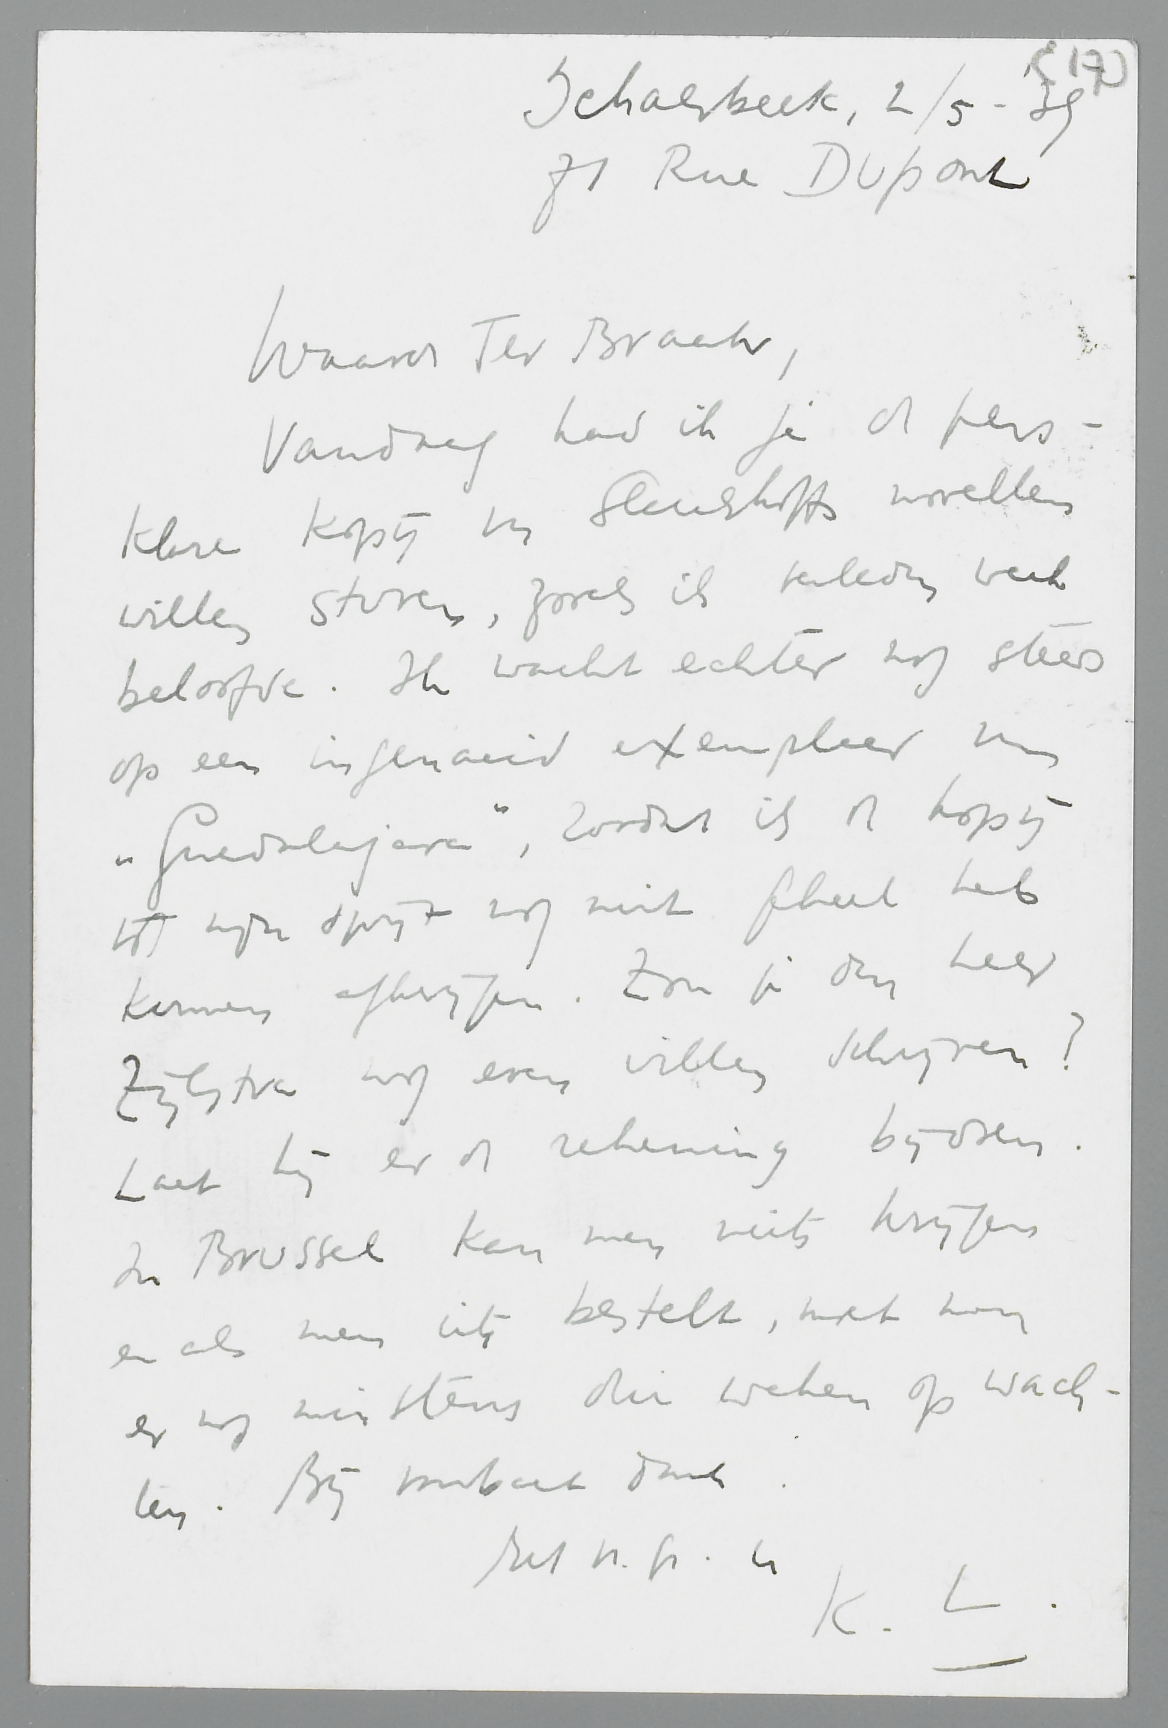 (17)
Schaerbeek, 2/5-39
71 Rue Dupont
Waarde Ter Braak,
Vandaag had ik je de pers-
klare kopij van novellen
willen sturen, zooals ik verleden week
beloofde. Ik wacht echter nog steeds
op een ingenaeid exemplaar van
„Guadalajara", zoodat ik de kopij
tot mijn spijt nog niet geheel heb
kunnen afkrijgen. Zou je den heer
Zijlstra nog even willen schrijven?
Laat hij er de rekening bijdoen.
In Brussel kan men niets krijgen
en als men iets bestelt, moet men
er nog minstens drie weken op wach-
ten. Bij voorbaat dank.
Met v. gr. 
K. L.